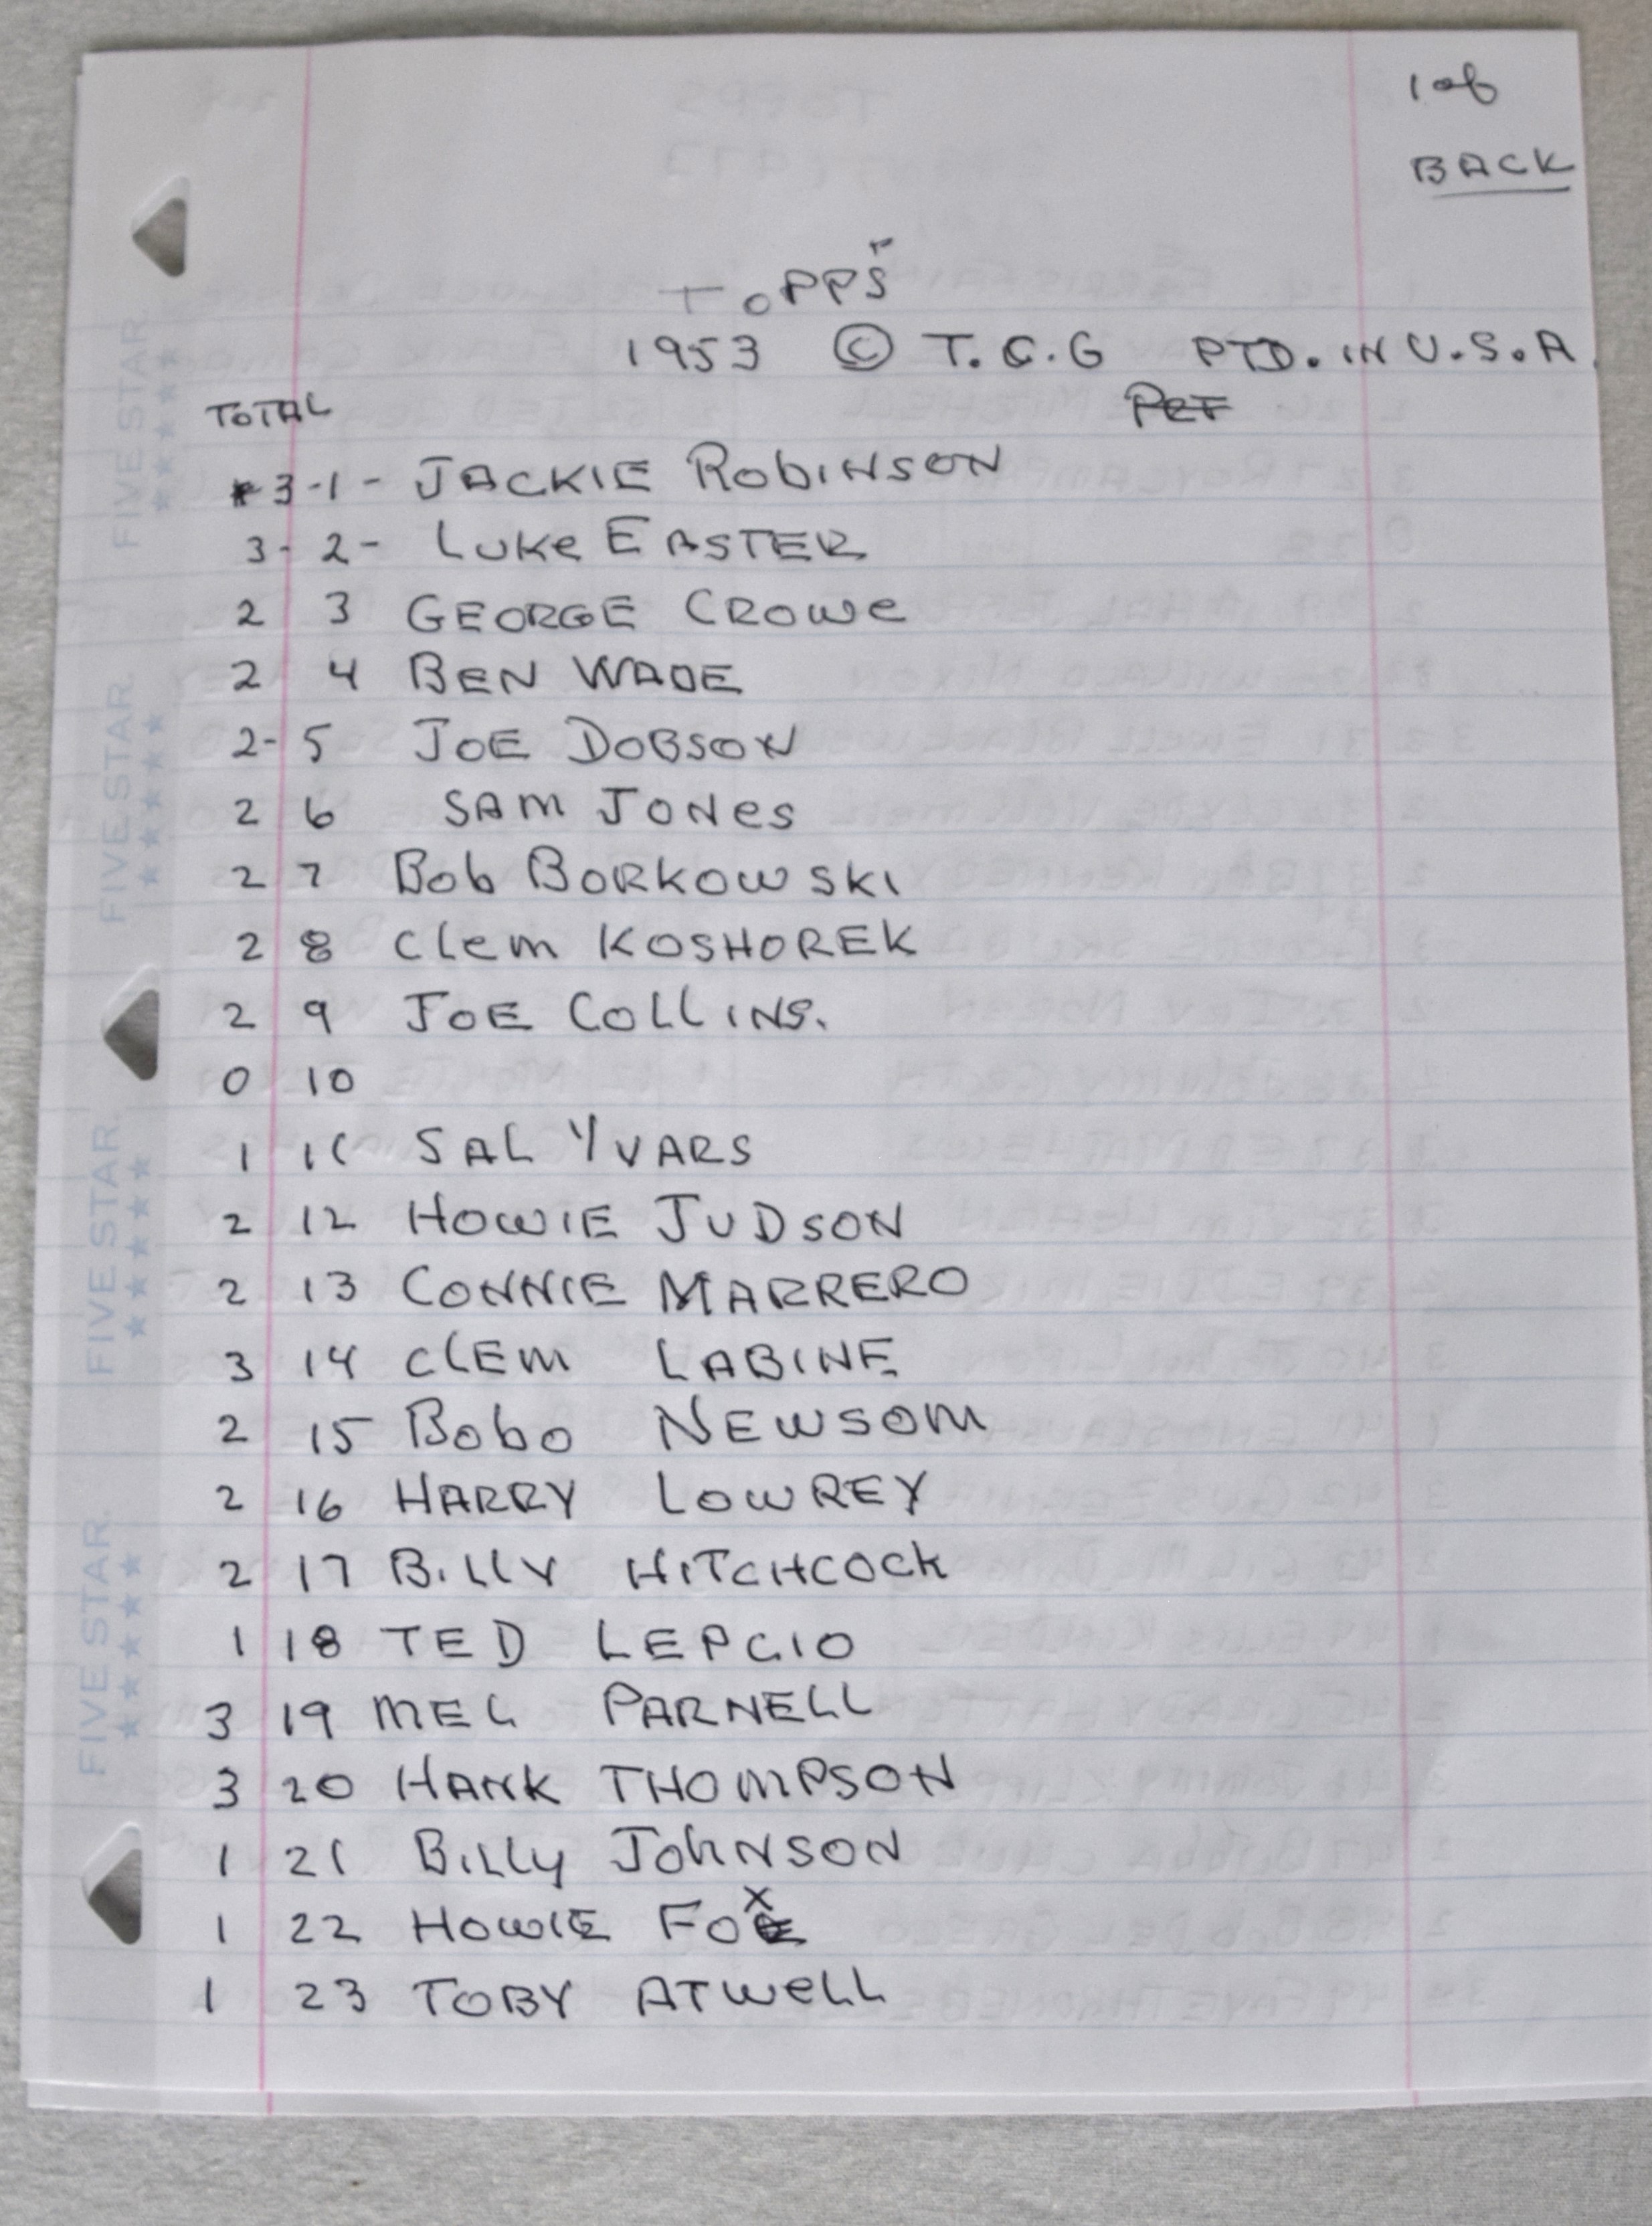 1 of
BACK
TOPPS
1953 © T.C.G PTD. IN U.S.A.
TOTAL
3-1- JACKIE RobINSON
3-2- LUKe EASTER
2 3 GEORGE CROWe
2 4 BEN WADE
2-5 JOE DOBSON
2 6 SAM JONes
2 7 Bob BORKOWSKI
2 8 Clem KOSHOREK
2 9 JOE COLLINS.
0 10
1 11 SAL YVARS
2 12 HOWIE JUDSON
2 13 CONNIE MARRERO
3 14 CLEM LABINE
2 15 Bobo NEWSOM
2 16 HARRY LOWREY
2 17 BILLY HITCHCOCK
1 18 TED LEPCIO
3 19 MEL PARNELL
3 20 HANK THOMPSON
1 21 BILLy JOhNSON
1 22 HOWIE FOX
1 23 TOBY ATWeLL
FIVE STAR
FIVE STAR
FIVE STAR
FIVE STAR